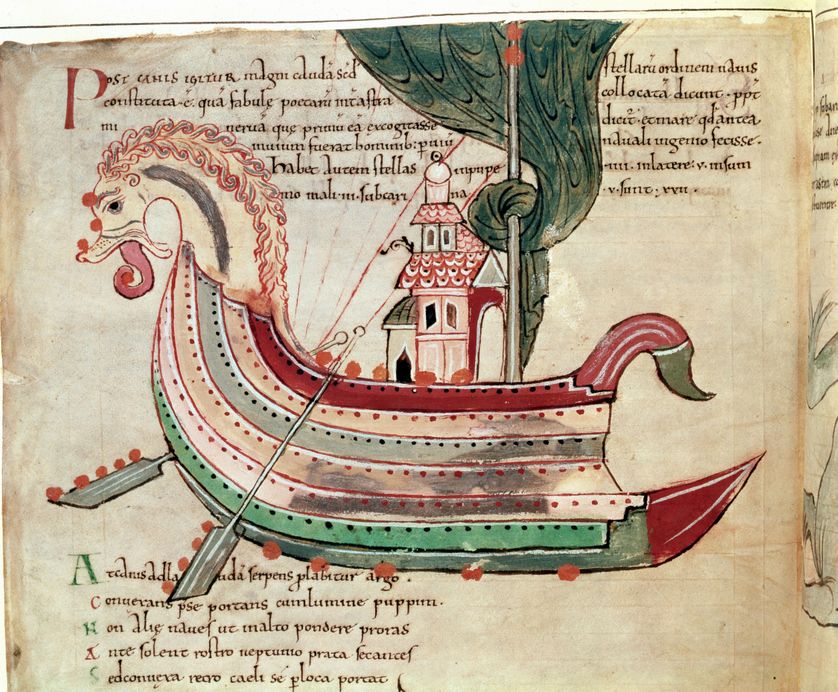 Post canis igitur. magni caudā sed stellarū ordinem nauis
constituta · ē · quā fabulę poetarū int astra collocatā dicunt · ppt
mi neruā quę primū eā excogitasse dicit · et mare qđ antea
inuium fuerat hominib: p uiū nauali ingenio fecisse ·
habet autem stellas in puppe · iiii · in latere · v · in sum
mo mali · iii · sub cari na · v · sunt : xxii ·
At canis ad caudā serpens plabitur argo .
Conuersam pse portans cum lumine puppim .
Non alię naues ut in alto pondere proras
Ante solent rostro neptunio prata secantes
Sed conuexa retro caeli se p loca portat